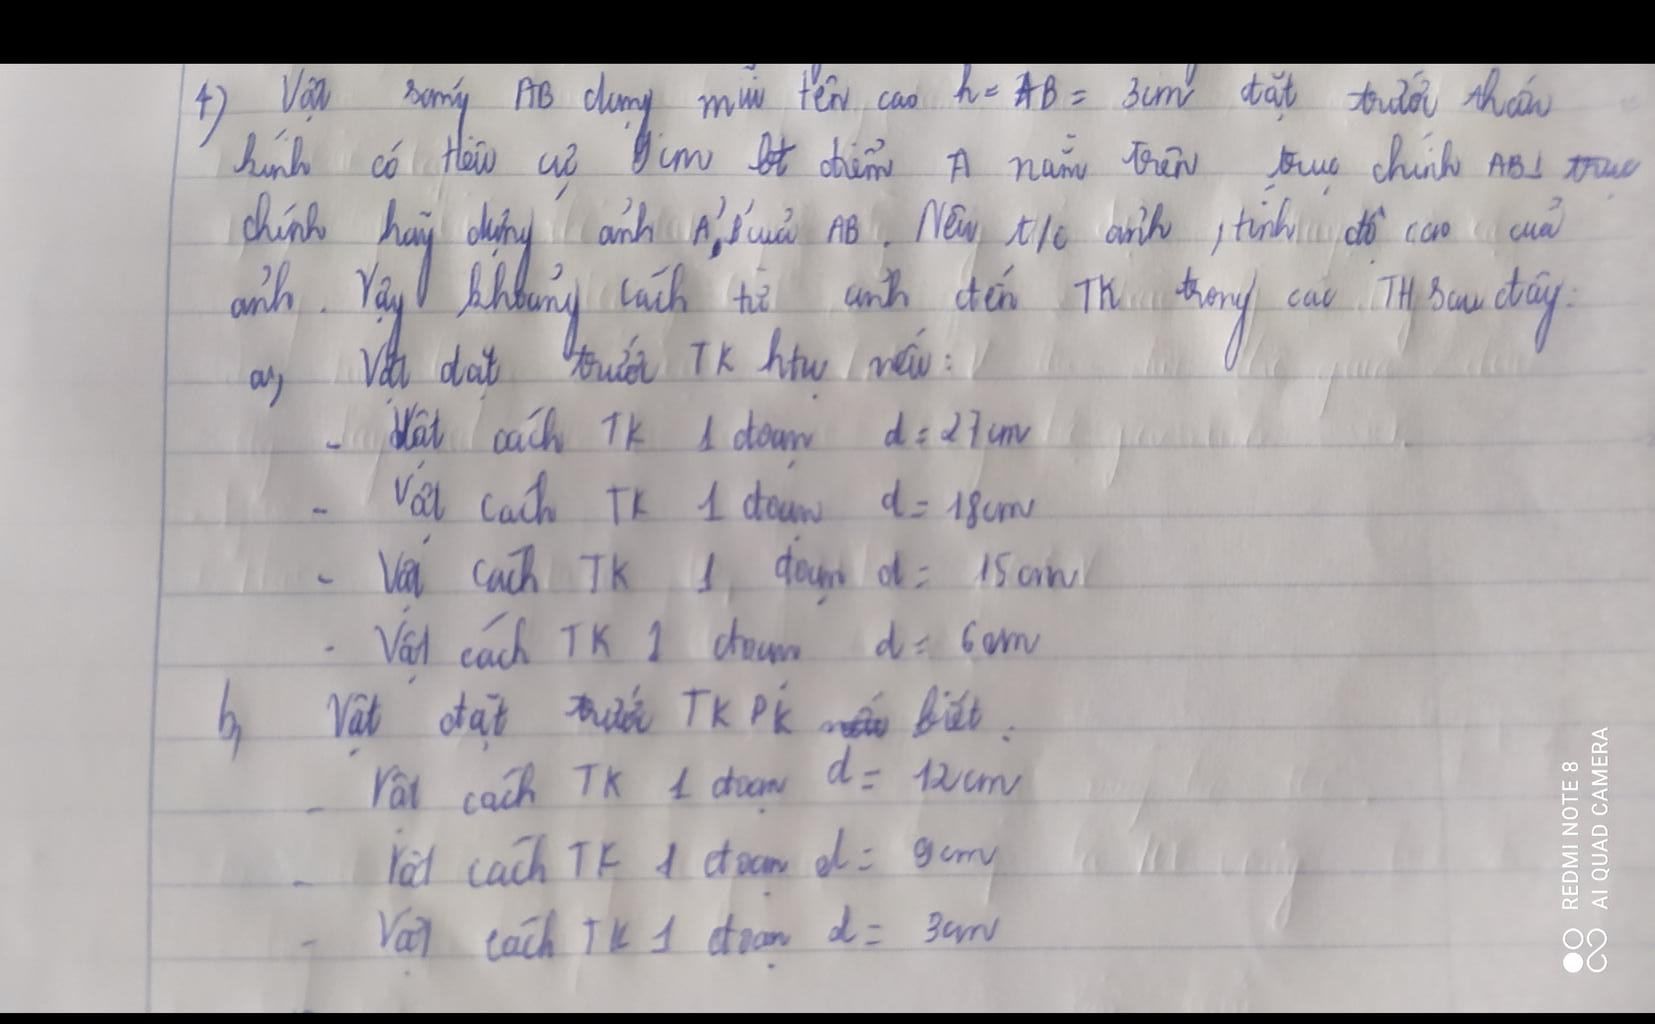 4) Vật sáng AB dạng mũi tên cao h = AB = 3cm đặt trước thấu
kính có tiêu cự 9cm biết điểm A nằm trên trục chính AB⊥ trục
chính hãy dựng ảnh A'B' của AB. Nêu t/c ảnh, tính độ cao của
ảnh. Vậy khoảng cách từ ảnh đến TK trong các TH sau đây:
a, Vật đặt trước TK htụ nếu:
- Vật cách TK 1 đoạn d = 27cm
- Vật cách TK 1 đoạn d = 18cm
- Vật cách TK 1 đoạn d = 15cm
- Vật cách TK 1 đoạn d = 6cm
b, Vật đặt trước TK PK biết:
- Vật cách TK 1 đoạn d = 12cm
- Vật cách TK 1 đoạn d = 9cm
- Vật cách TK 1 đoạn d = 3cm
REDMI NOTE 8
AI QUAD CAMERA